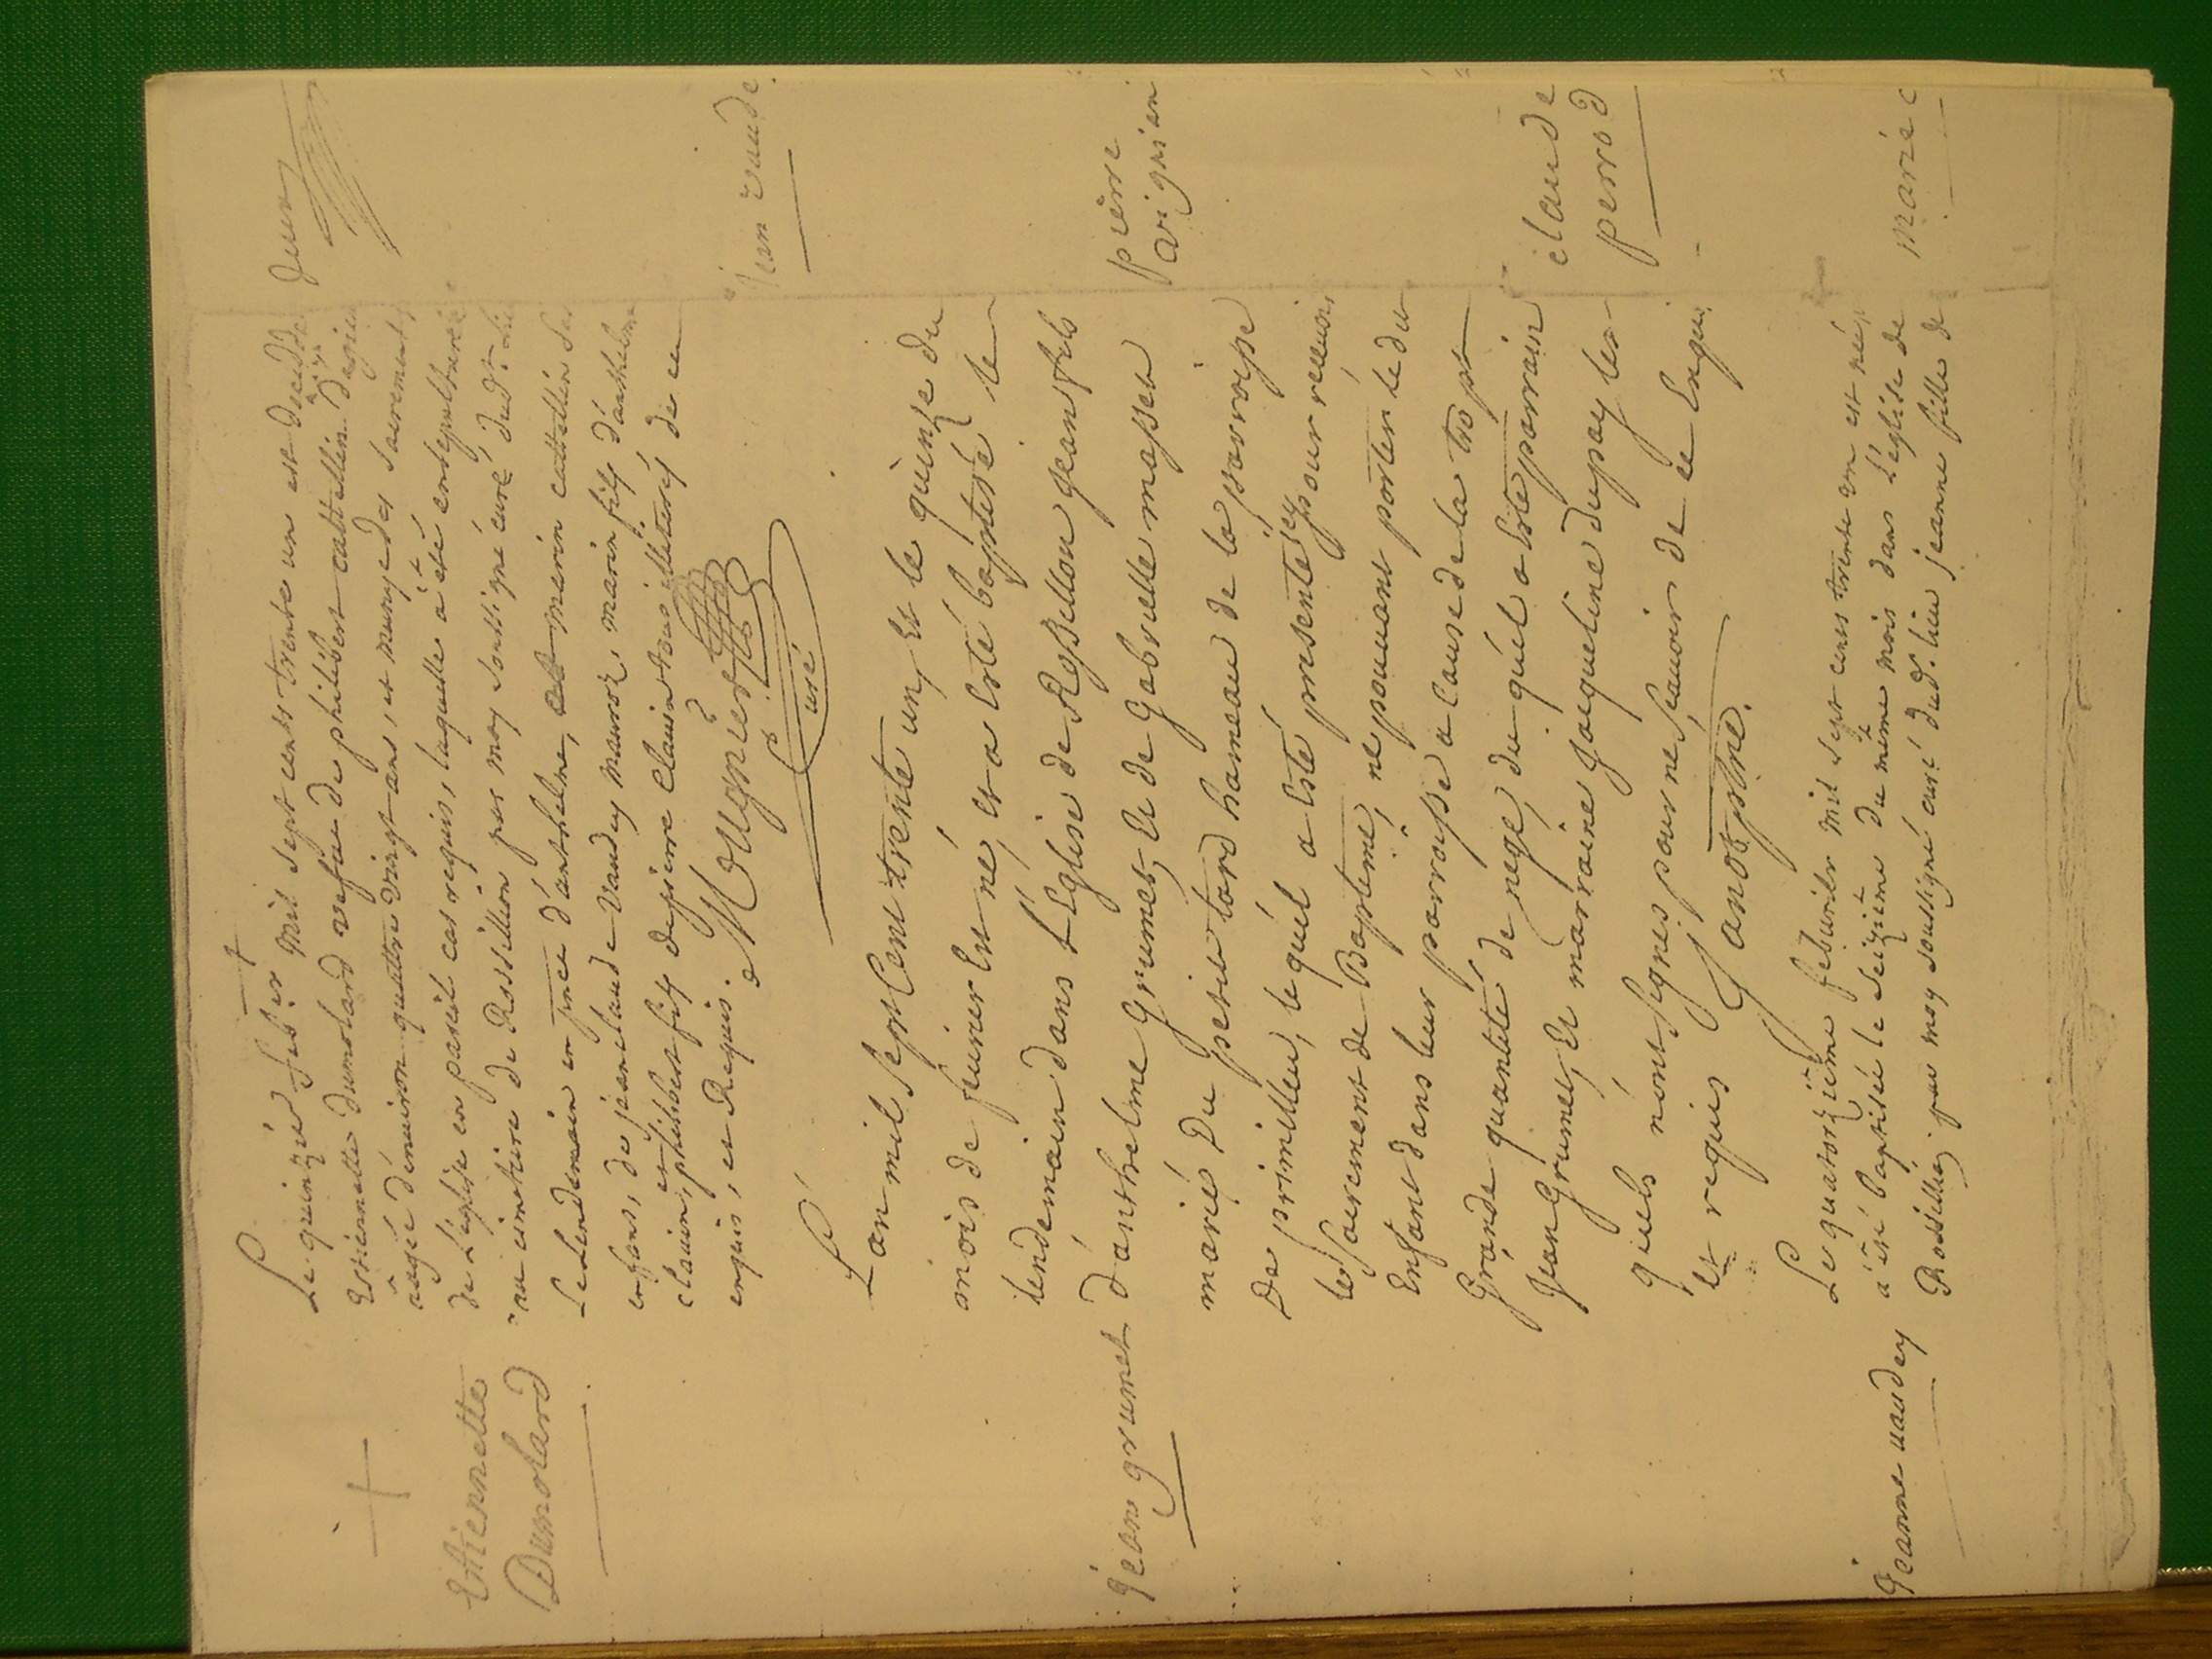 Etiennette
Dumolard
Le quinzié feb.er mil sept cents trente un est décédée
Estiennette dumolard vefue de philibert cattellin
aagée d'enuiron quattre vingt ans, et munye des sacrements
de L'églize en pareil cas requis, laquelle a été ensepulturée
au cimetiere de Rossillion par moy soussigné curé dud.t lieu
Le Lendemain en pnce d'anthelme, marin cattellin ses
enfans, de jeanclaude vaudey manvoz, marin fils d'anthelme
clauin, et philibert fils de pierre clauin touts illiterés de ce
enquis, et Requis.
Mougnier
curé
jean grumet
L'an mil sept Cent trente un, et le quinze du
mois de feurier Est né, et a Esté baptisé le
lendemain dans L'Eglise de Rossillon jean fils
d'anthelme Grumet, Et de Gabrielle masset
mariés Du petit tard hameau de la parroisse
De primillieu, le quel a Esté presenté icy pour receuoir
le sacrement de Baptême, ne pouuant porter le du
Enfant dans leur parroisse a Cause de la trop
Grande quantité de nége, du quel a Esté parrain
jean Grumet, Et marraine jacqueline dupuy les
quiels n'ont signés pour ne sçauoir de ce Enquis
et requis Janot ptre.
jeanne uaudey
Le quatorzième feburier mil sept cents trente un est née,
a été baptisée le seizième du même mois dans l'églize de
Rossillion par moy soussigné curé dud.t lieu jeanne fille de
jean vaude
pierre
avignien
claude
perrod
marié